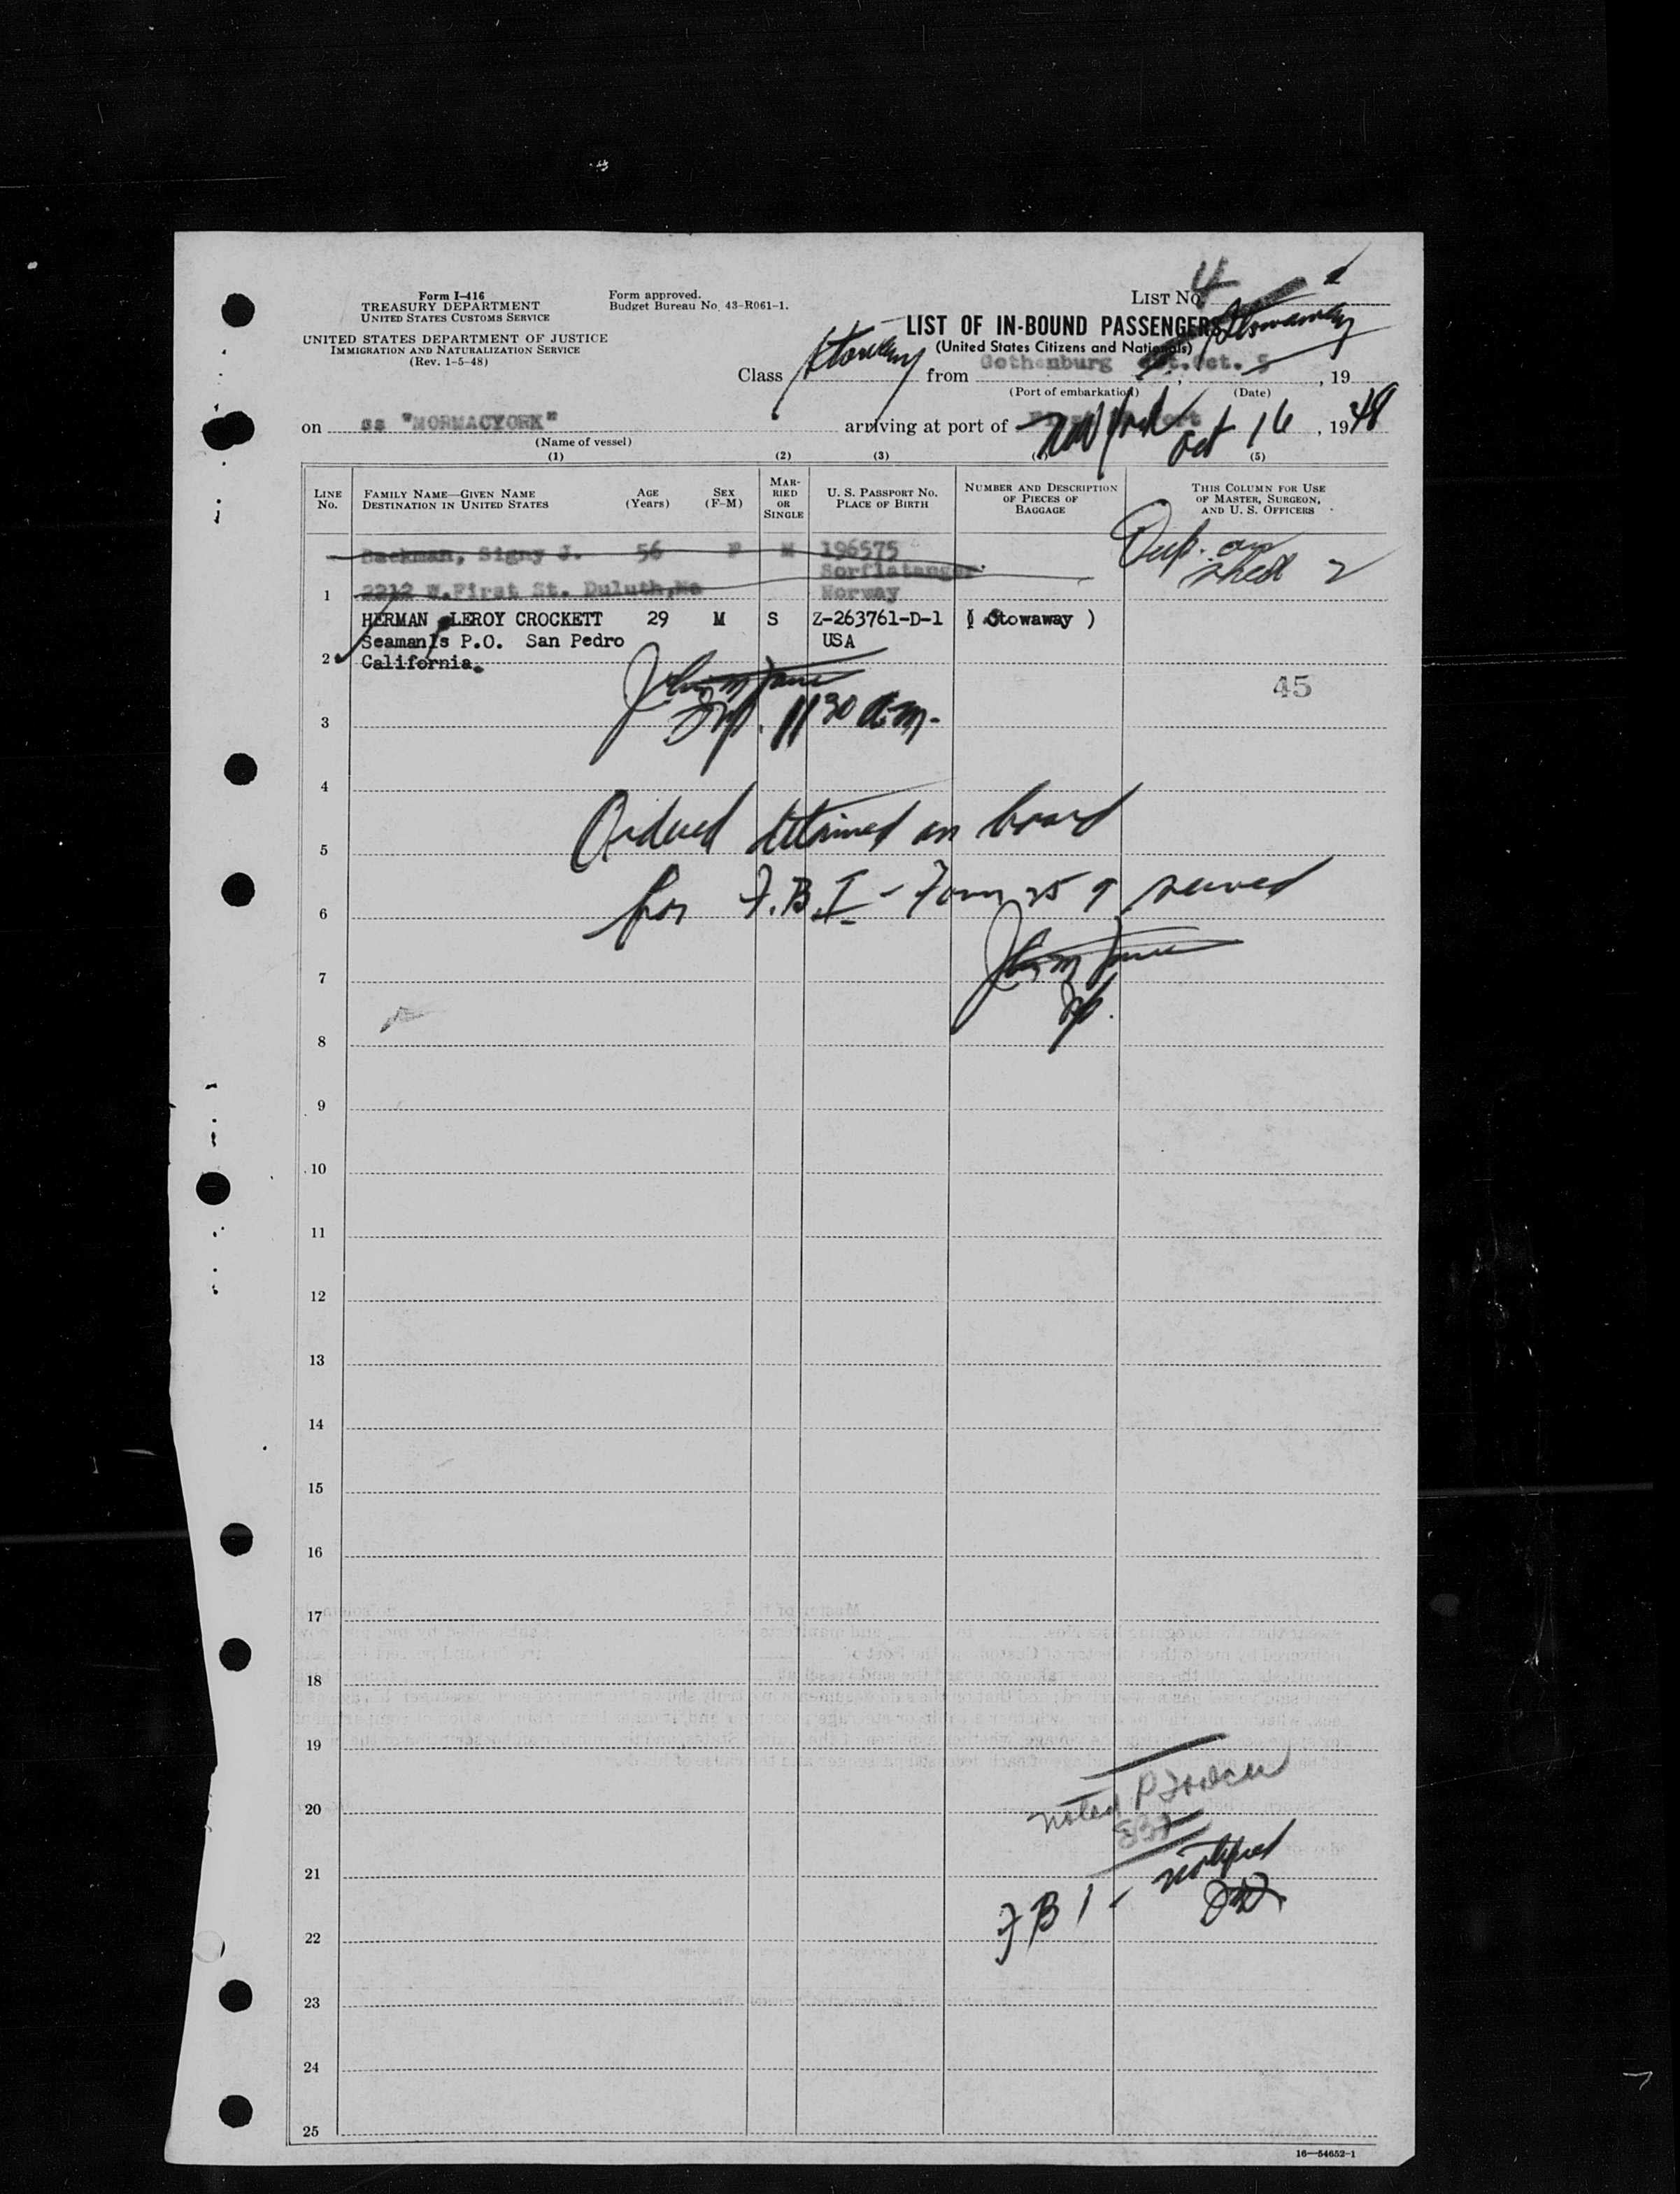 Form I-416
TREASURY DEPARTMENT
UNITED STATES CUSTOMS SERVICE
UNITED STATES DEPARTMENT OF JUSTICE
IMMIGRATION AND NATURALIZATION SERVICE
(Rev. 1-5-48)
Form approved.
Budget Bureau No. 43-R061-1.
LIST NO. 4
LIST OF IN-BOUND PASSENGERS Stowaway
(United States Citizens and Nationals)
Class Stowaway from Gothenburg Oct. 5, 19
(Port of embarkation) (Date)
on ss "MORMACYORK" arriving at port of New York Oct 16, 1948
(Name of vessel)
(1) (2) (3) (4) (5)
LINE No. FAMILY NAME—GIVEN NAME DESTINATION IN UNITED STATES AGE (Years) SEX (F-M) MARRIED OR SINGLE U. S. PASSPORT NO. PLACE OF BIRTH NUMBER AND DESCRIPTION OF PIECES OF BAGGAGE THIS COLUMN FOR USE OF MASTER, SURGEON, AND U. S. OFFICERS
Backman, Signy J. 56 F M 196575 Dup. on
Sorflatanger sheet 2
1 2212 W.First St. Duluth, Norway
HERMAN LEROY CROCKETT 29 M S Z-263761-D-1 ( Stowaway )
Seaman's P.O. San Pedro USA
2 California.
45
3 Insp. 11 30 am.
4
5 Ordered detained on board
6 for F.B.I - Form 259 served
7
Insp.
8
9
10
11
12
13
14
15
16
17
18
19
20 noted
21 notified
FBI -
22
23
24
25
16—54652-1